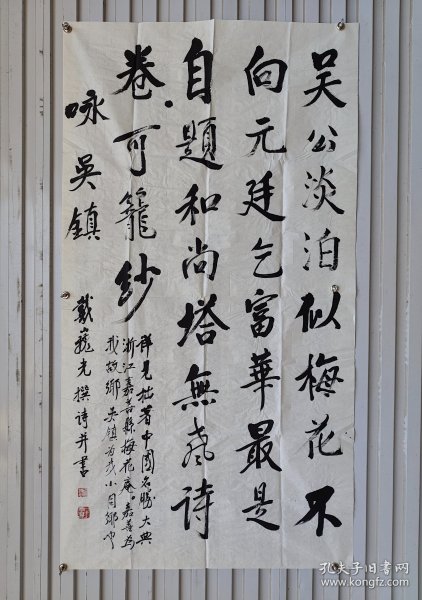 吴公淡泊似梅花不
向元廷乞富華最是
自題和尚塔無聲詩
卷可籠紗
咏吳鎮
詳見拙著中國名勝大典
浙江嘉善縣梅花庵。嘉善為
我故鄉吳鎮為我小同鄉也
戴巍光撰詩并書
孔夫子旧书网
www.kongfz.com